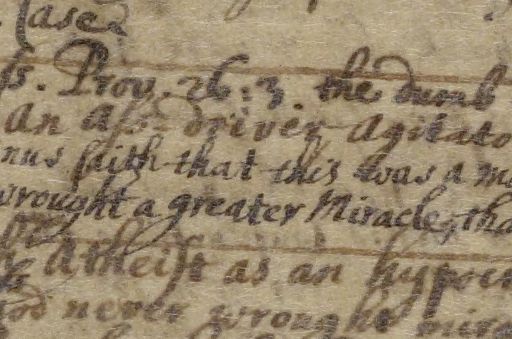 Case
ss. Prov. 26:3. the dumb
an Ass-driver Agitato
nus saith that this was a mo
wrought a greater Miracle, tha
Atheist as an hypocr
God never wrought mira